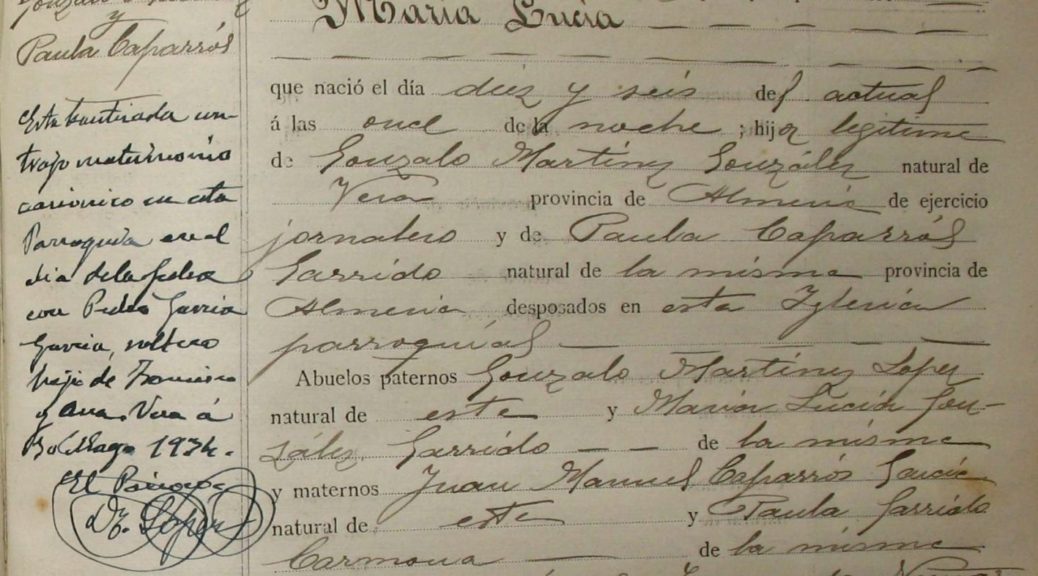 y
Paula Caparrós
Esta bautizada con-
trajo matrimonio
canónico en esta
Parroquia en el
dia de la fecha
con Pedro Garcia
Garcia, soltero
hijo de Francisco
y Ana. Vera á
Agosto 1934.
El Párroco
López
María Lucía
que nació el día diez y seis del actual
á las once de la noche ; hija legitima
de Gonzalo Martínez González natural de
Vera provincia de Almería de ejercicio
jornalero y de Paula Caparrós
Garrido natural de la misma provincia de
Almeria desposados en esta Iglesia
parroquial
Abuelos paternos Gonzalo Martínez Lopez
natural de esta y María Lucía Gon-
zález Garrido de la misma
y maternos Juan Manuel Caparrós García
natural de esta y Paula Garrido
Carmona de la misma